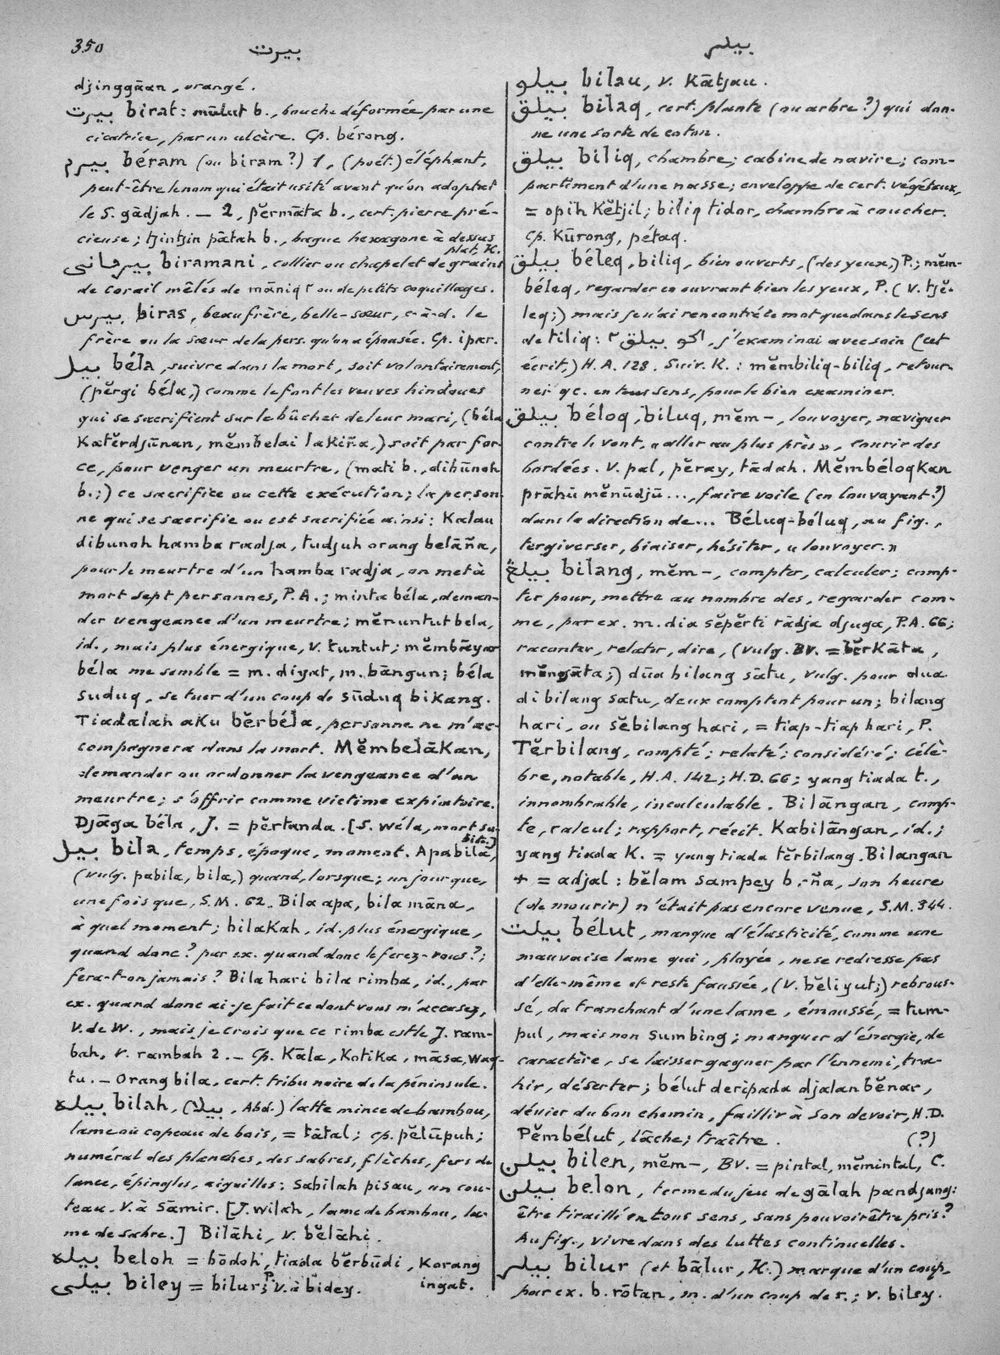 350
بيرت
بيلر
djinggāan, orangé.
بيرت birat: mūlut b., bouche déformée par une
cicatrice, par un ulcère. Cp. bérong.
بيرم béram (ou biram?) 1, (poét.) éléphant,
peut-être le nom qui était usité avant qu'on adoptat
le S. gādjah. — 2, pĕrmāta b., cert. pierre pré-
cieuse; tjintjin pātah b., bague hexagone à dessus
plat, K.
بيرماني biramani, collier ou chapelet de grains
de corail mêlés de māniq ou de petits coquillages.
بيرس biras, beau frère, belle-sœur, c-à-d. le
frère ou la sœur de la pers. qu'on a épousée. Cp. ipar.
بيل béla, suivre dans la mort, soit volontairement,
(pĕrgi béla,) comme le font les veuves hindoues
qui se sacrifient sur le bûcher de leur mari, (béla
Katĕrdjūnan, mĕmbelai lakiña,) soit par for-
ce, pour venger un meurtre, (mati b., dibūnoh
b.;) ce sacrifice ou cette exécution; la person-
ne qui se sacrifie ou est sacrifiée ainsi: Kalau
dibunoh hamba radja, tudjuh orang belāña,
pour le meurtre d'un hamba radja, on met à
mort sept personnes, P.A.; minta béla, deman-
der vengeance d'un meurtre; mĕnuntut bela,
id., mais plus énergique, V. tuntut; mĕmbāyar
béla me semble = m. diyat, m. bāngun; béla
suduq, se tuer d'un coup de sūduq bikang.
Tiadalah aku bĕrbéla, personne ne m'ac-
compagnera dans la mort. Mĕmbelākan,
demander ou ordonner la vengeance d'un
meurtre; s'offrir comme victime expiatoire.
Djāga béla, J. = pĕrtanda. [S. wéla, mort su-
bite.]
بيل bila, temps, époque, moment. Apabila,
(vulg. pabila, bila,) quand, lorsque; un jour que,
une fois que, S.M. 62. Bila apa, bila māna,
à quel moment; bilakah, id. plus énergique,
quand donc? par ex. quand donc le ferez-vous?;
fera-t-on jamais? Bila hari bila rimba, id., par
ex. quand donc ai-je fait ce dont vous m'accusez,
V. de W., mais je crois que ce rimba est le J. ram-
bah, v. rambah 2. — Cp. Kāla, Kotika, māsa, waq-
tu. — Orang bila, cert. tribu noire de la péninsule.
بيله bilah, (بيلا, Abd.) latte mince de bambou,
lame ou copeau de bois, = tātal; cp. pĕlūpuh;
numéral des planches, des sabres, flèches, fers de
lance, épingles, aiguilles: sabilah pisau, un cou-
teau. V. à Sāmir. [J. wilah, lame de bambou, la-
me de sabre.] Bilāhi, v. bĕlāhi.
بيله beloh = bōdoh, tiada bĕrbūdi, Korang
ingat.
بيلي biley = bilur; v. à bidey.
بيلو bilau, v. Kātjau.
بيلق bilaq, cert. plante (ou arbre?) qui don-
ne une sorte de coton.
بيلق biliq, chambre; cabine de navire; com-
partiment d'une nasse; enveloppe de cert. végétaux,
= opih Kĕtjil; biliq tidor, chambre à coucher.
Cp. Kūrong, pétaq.
بيلق béleq, biliq, bien ouverts, (des yeux,) P.; mĕm-
béleq, regarder en ouvrant bien les yeux, P. (v. tjĕ-
leq;) mais je n'ai rencontré le mot que dans le sens
de tiliq: اکو بيلق٢, j'examinai avec soin (cet
écrit,) H.A. 128. Suiv. K.: mĕmbiliq-biliq, retour-
ner qc. en tous sens, pour le bien examiner.
بيلق béloq, biluq, mĕm-, louvoyer, naviguer
contre le vent, «aller au plus près», courir des
bordées. V. pal, pĕray, tādah. Mĕmbéloqkan
prāhū mĕnūdjū..., faire voile (en louvoyant?)
dans la direction de... Béluq-béluq, au fig.,
tergiverser, biaiser, hésiter, «louvoyer.»
بيلڠ bilang, mĕm-, compter, calculer; comp-
ter pour, mettre au nombre des, regarder com-
me, par ex. m. dia sĕpĕrti rādja djuga, P.A. 66;
raconter, relater, dire, (vulg. BV. = bĕrkāta,
mĕngāta;) dūa bilang sātu, vulg. pour dua
di bilang satu, deux comptent pour un; bilang
hari, ou sĕbilang hari, = tiap-tiap hari, P.
Tĕrbilang, compté; relaté; considéré; célè-
bre, notable, H.A. 142; H.D. 66; yang tiada t.,
innombrable, incalculable. Bilāngan, comp-
te, calcul; rapport, récit. Kabilāngan, id.;
yang tiada K. = yang tiada tĕrbilang. Bilangan
+ = adjal: bĕlom sampey b.-ña, son heure
(de mourir) n'était pas encore venue, S.M. 344.
بيلت bélut, manque d'élasticité, comme une
mauvaise lame qui, ployée, ne se redresse pas
d'elle-même et reste faussée, (v. bĕliyut;) rebrous-
sé, du tranchant d'une lame, émoussé, = tum-
pul, mais non sumbing; manquer d'énergie, de
caractère, se laisser gagner par l'ennemi, tra-
hir, déserter; bélut deripada djalan bĕnar,
dévier du bon chemin, faillir à son devoir, H.D.
Pĕmbélut, lâche; traître. (?)
بيلن bilen, mĕm-, BV. = pintal, mĕmintal, C.
بيلن belon, terme du jeu de gālah pandjang:
être tiraillé en tous sens, sans pouvoir être pris?
Au fig., vivre dans des luttes continuelles.
بيلر bilur (et bālur, K.) marque d'un coup,
par ex. b. rōtan, m. d'un coup de r.; v. biley.